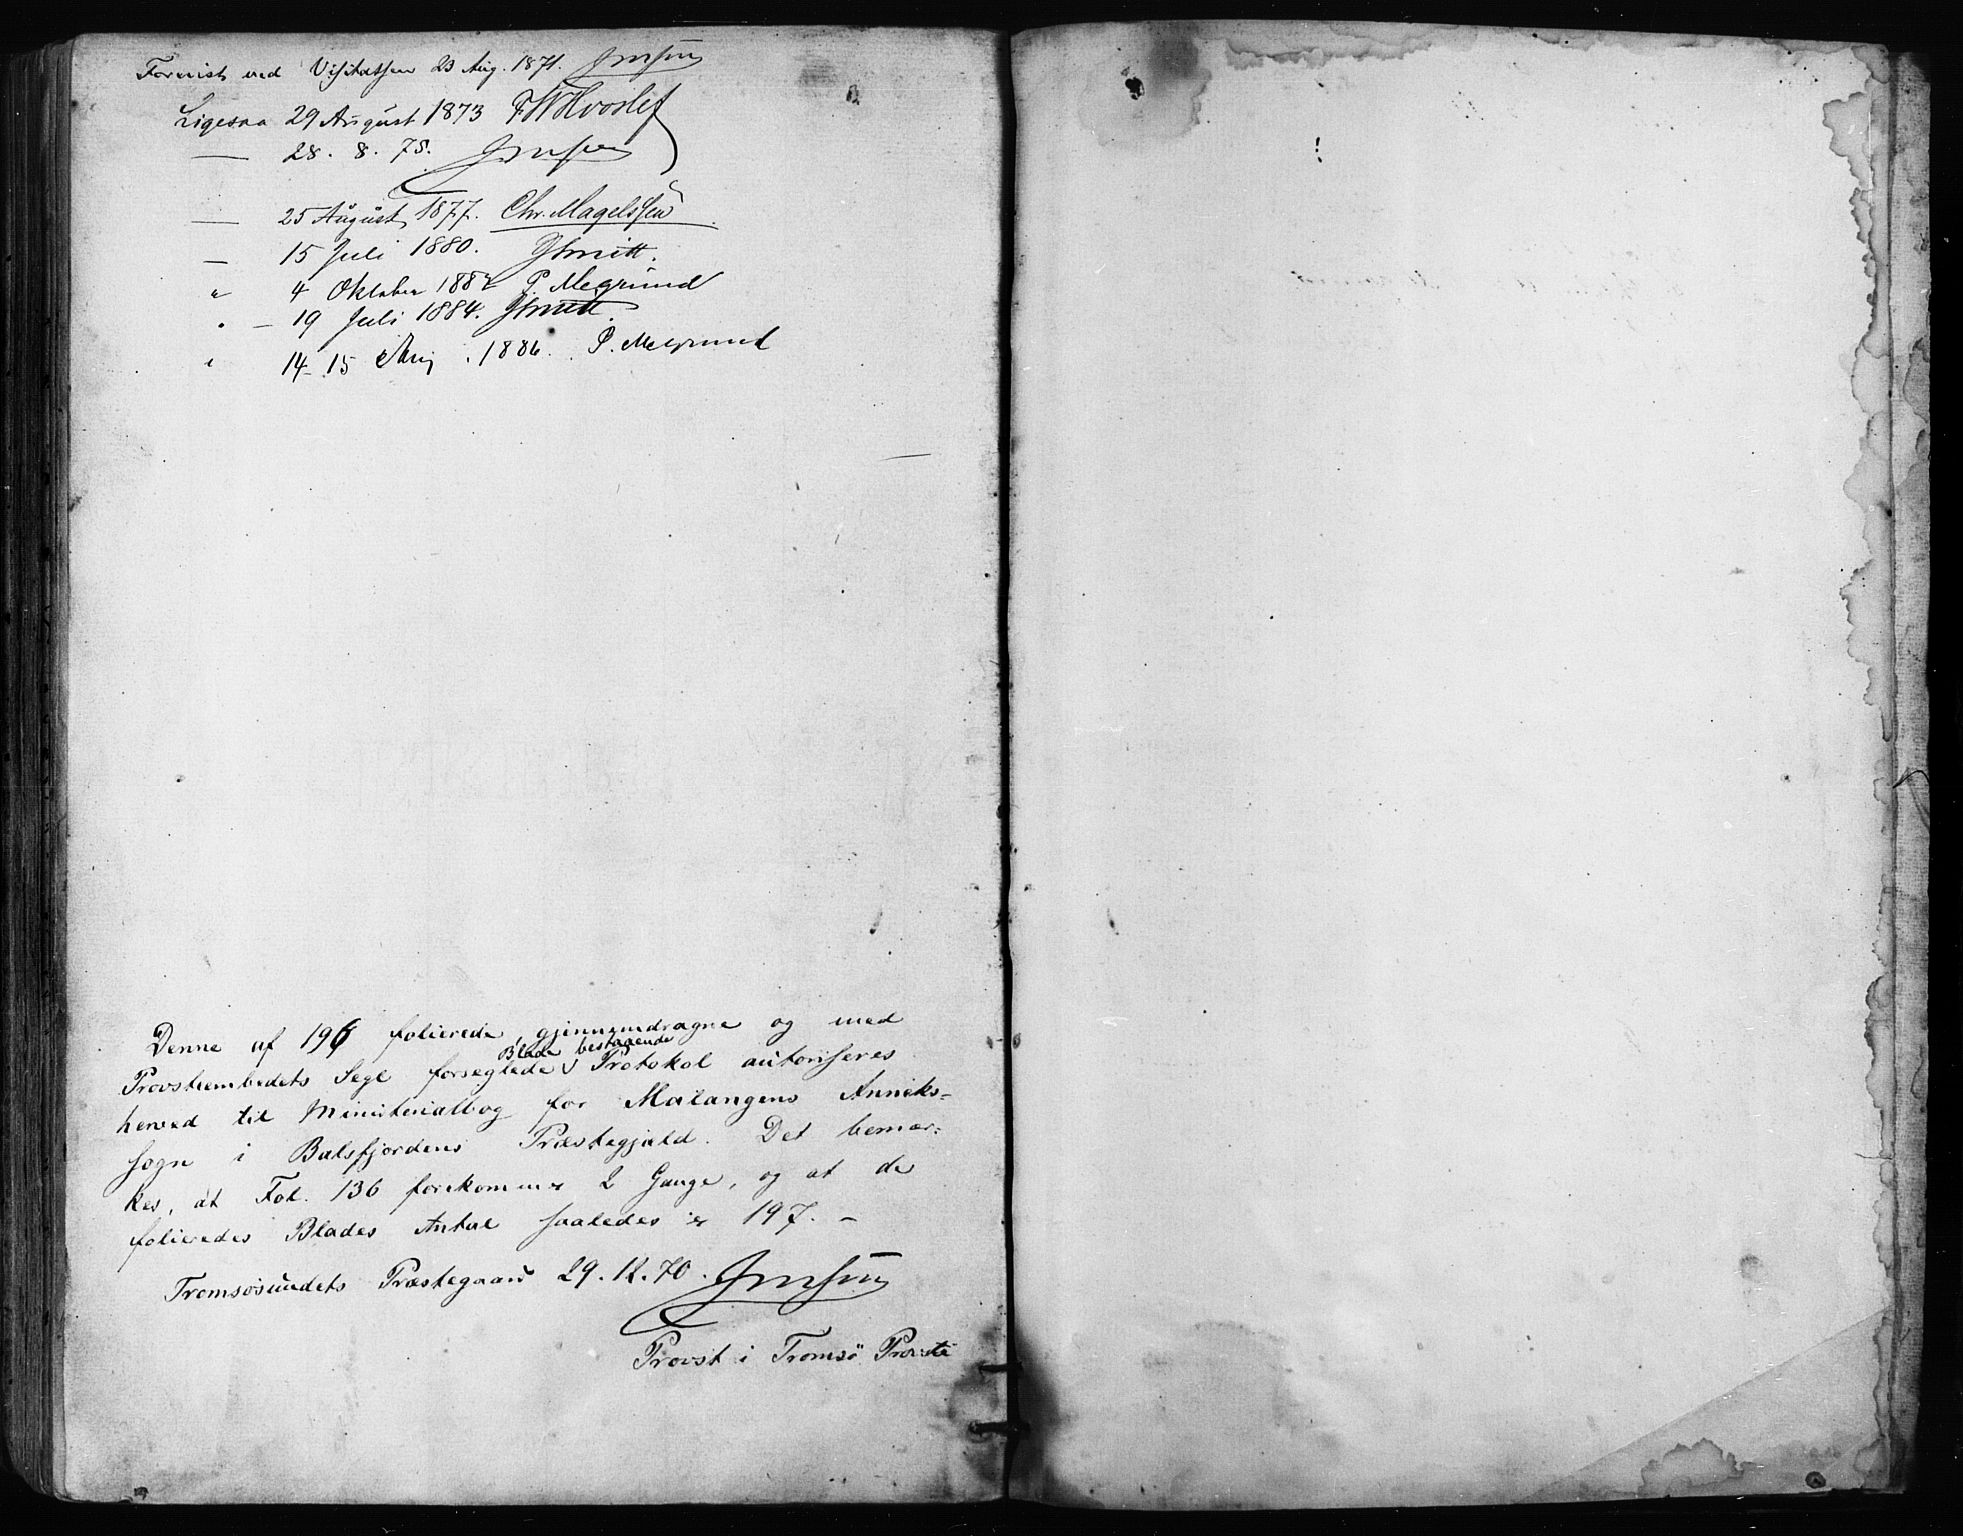 Forevist ved Visitatsen 23 Aug. 1871.
Ligesaa 29 August 1873 FWHvoslef
— 28. 8. 75.
— 25 August 1877. Chr. Magelssen
— 15 Juli 1880. JSmitt.
" 4 Oktober 1882 P. Megrund
" — 19 Juli 1884. JSmitt.
" 14-15 Aug. 1886. P. Megrund
Denne af 196 folierede, gjennemdragne og med
Blade bestaaende
Provstiembedets Segl forseglede Protokol autoriseres
herved til Ministerialbog for Malangens Anneks-
sogn i Balsfjordens Præstegjæld. Det bemær-
kes, at Fol. 136 forekommer 2 Gange, og at de
folieredes Blades Antal saaledes er 197. –
Tromsøsundets Præstegaard 29.12.70.
Provst i Tromsö Provsti